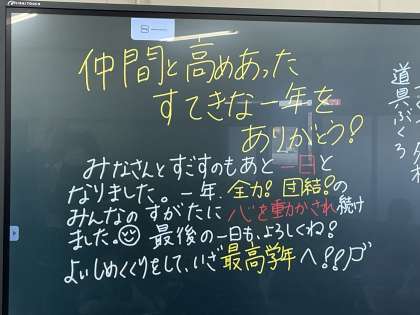 仲間と高めあった
すてきな一年を
ありがとう!
みなさんとすごすのもあと一日と
なりました。一年、全力!団結!の
みんなのすがたに心を動かされ続け
ました。😊 最後の一日も、よろしくね!
よいしめくくりをして、いざ最高学年へ!!
道具ぶくろ